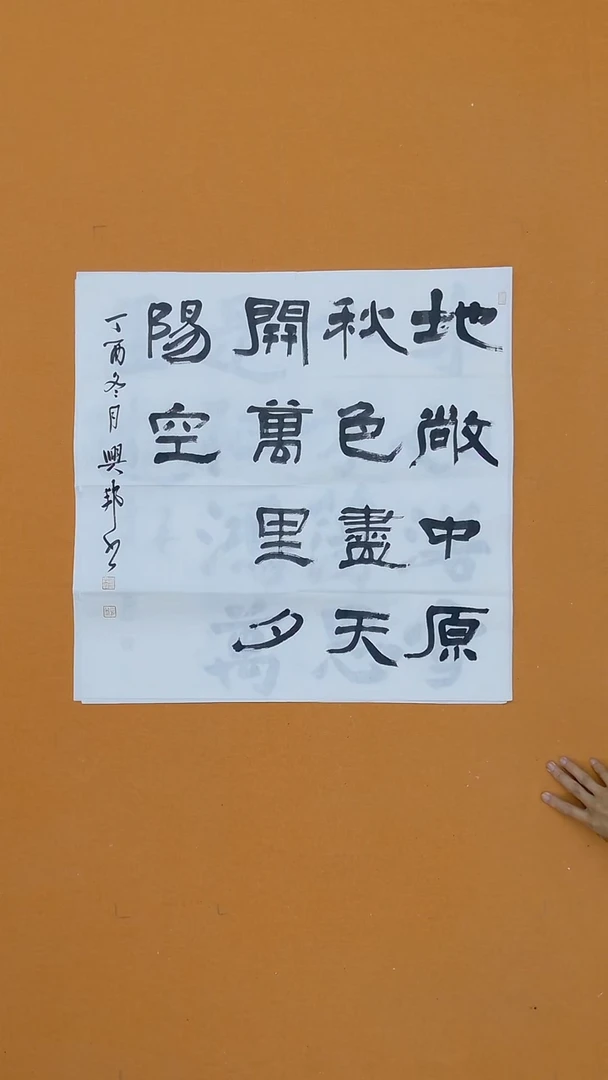 地敞中原
秋色盡天
開萬里夕
陽空
丁酉冬月興邦书